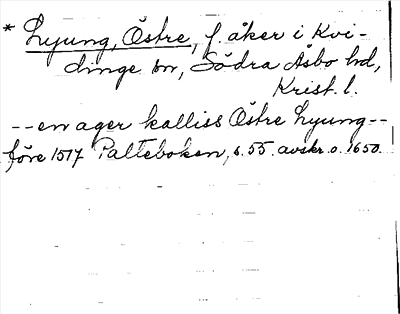 * Lyung, Östre, f. åker i Kvi-
dinge sn, Södra Åsbo hd,
Krist. l.
-- en ager kalliss Östre Lyung --
före 1517 Palteboken, s. 55. avskr. o. 1650.